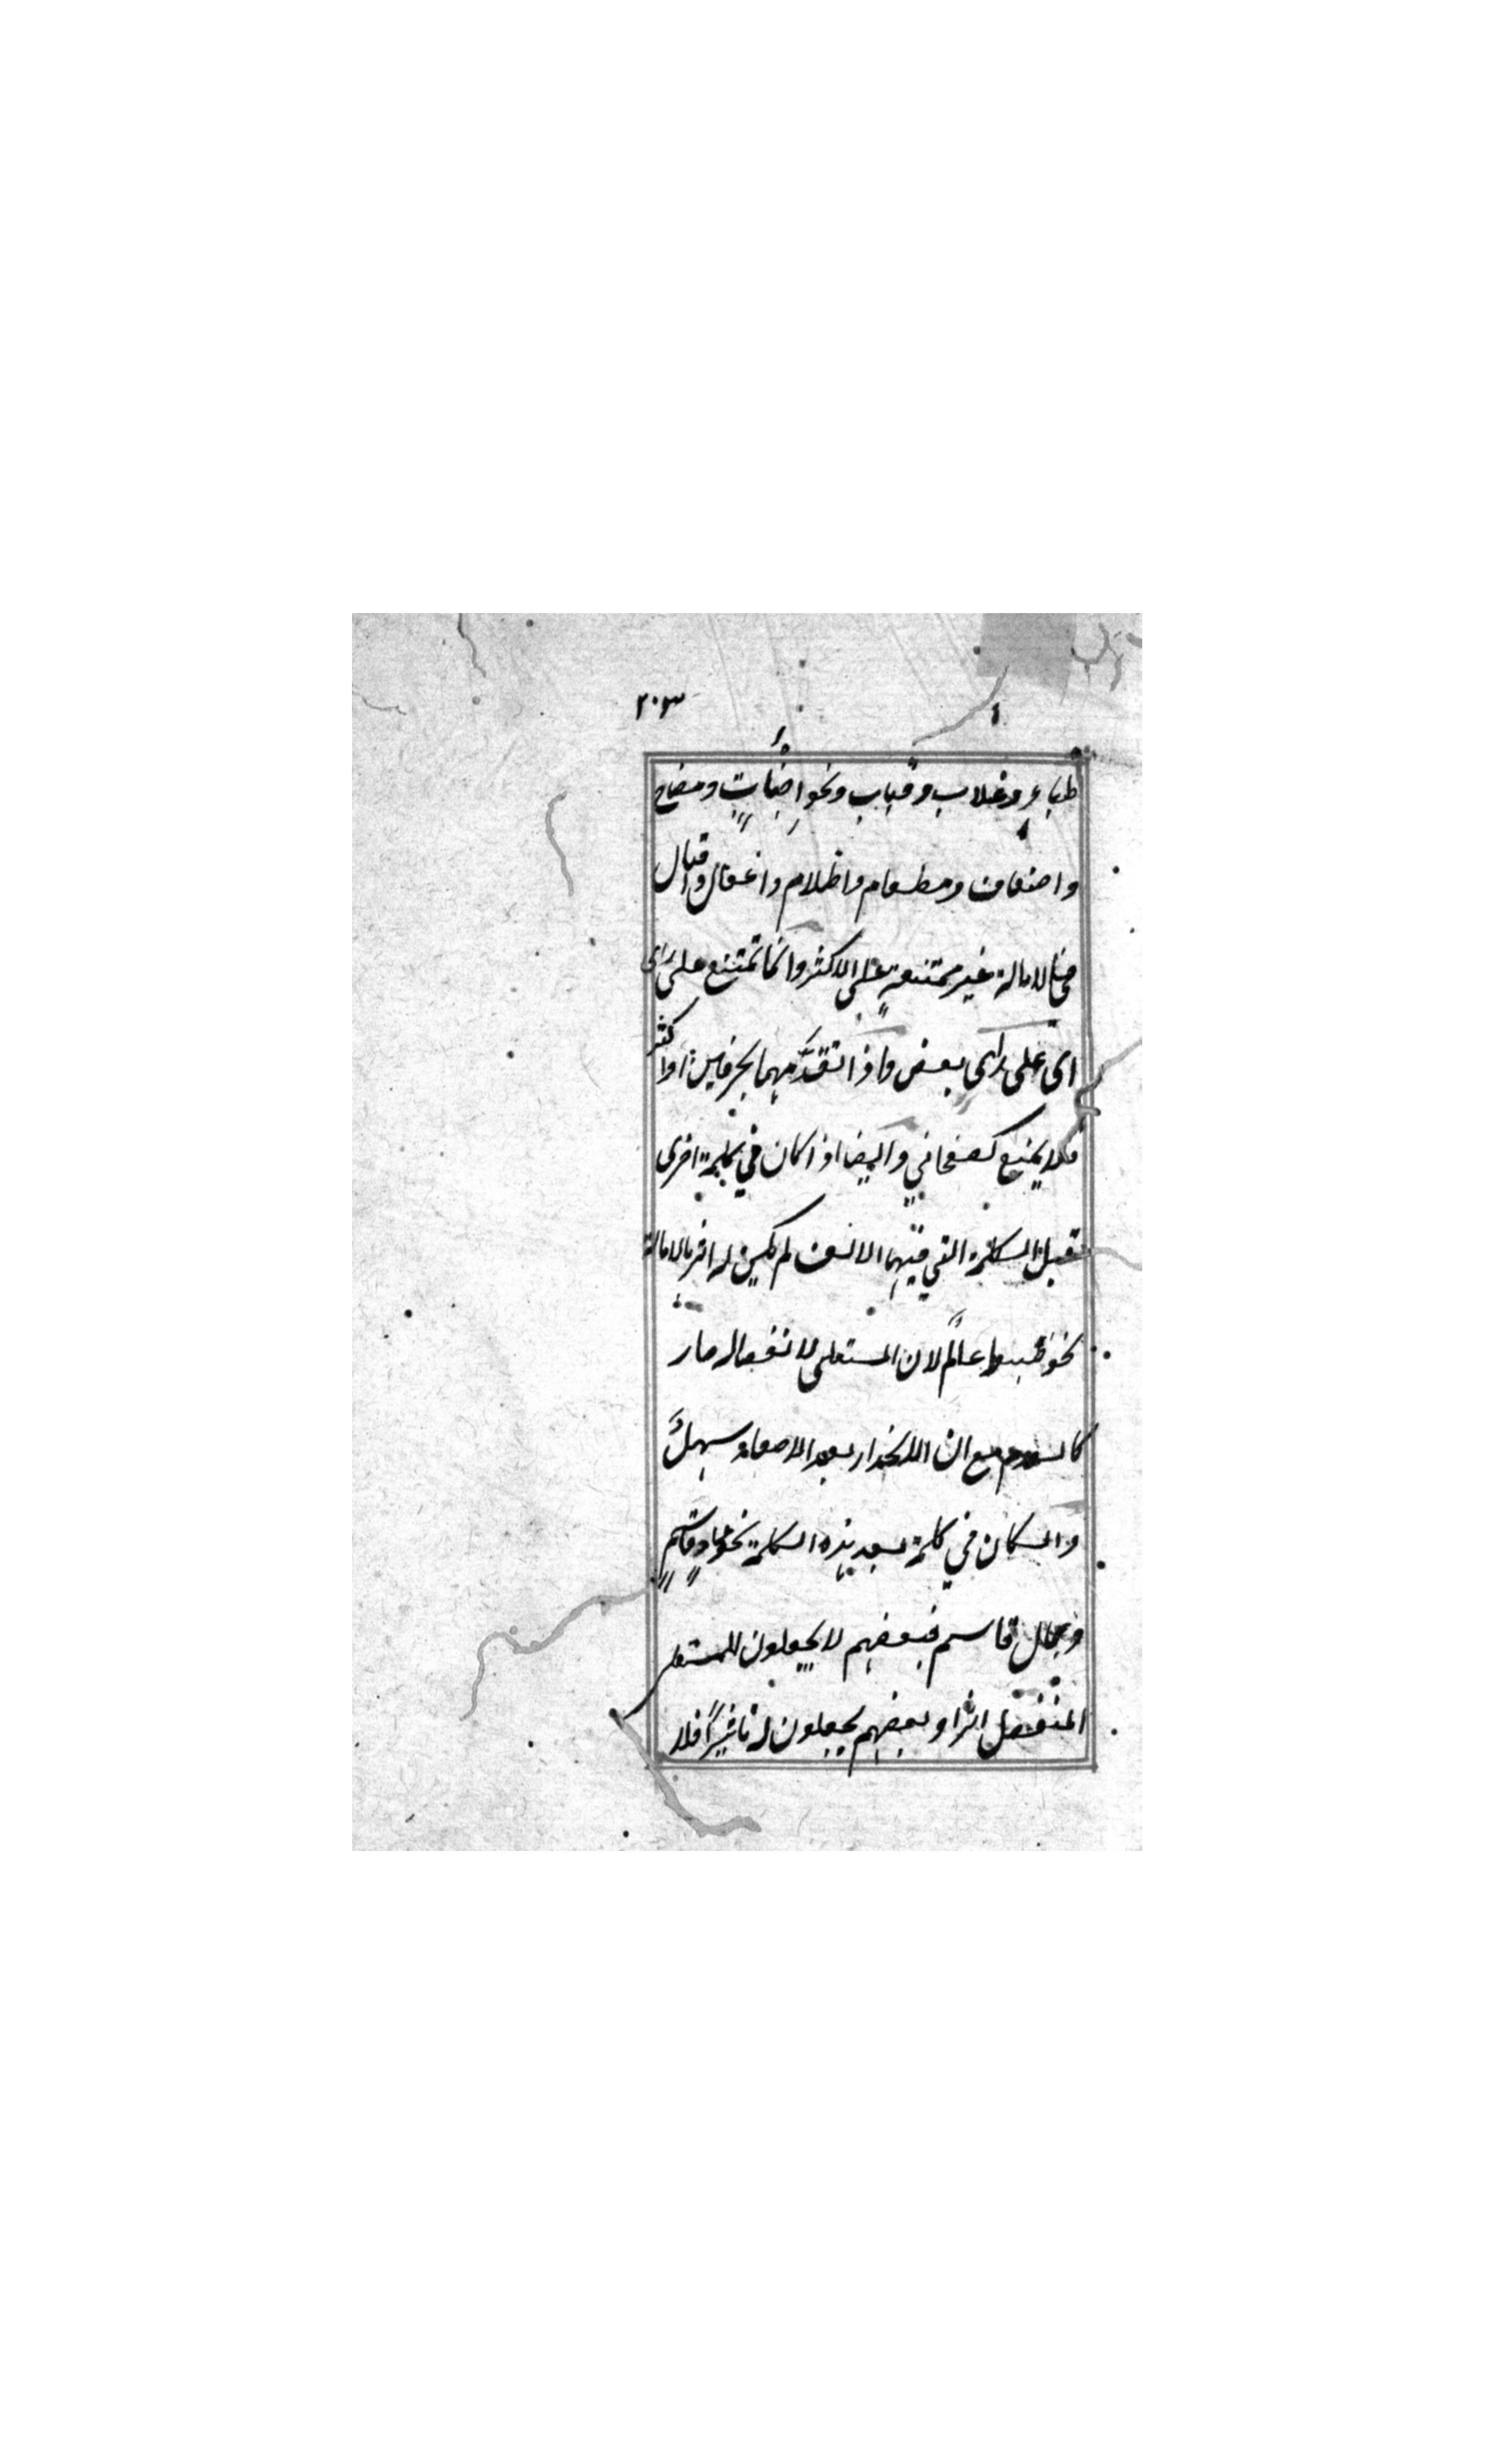 ٢٠٣
طباع وغلاب وقباب ونحو اخبات ومضاح
واضعاف ومطعام واظلام واغفال واقبال
فالامالة غير ممتنعة على الاكثر وانما تمتنع على راى
اى على راى بعض واذا تقدمهما بحرفين او اكثر
فلا يمنع كصفحاني وايضا اذا كان في كلمة اخرى
قبل الكلمة التي فيها الالف لم يكن له اثر بالامالة
نحو عالم لان المستعلى لانفصاله صار
كالعدم مع ان الانحدار بعد الاصعاد سهل
وان كان في كلمة بعد هذه الكلمة نحو عماد قاسم
وبمال قاسم فبعضهم لا يجعلون للمستعلى
المنفصل اثرا وبعضهم يجعلون له تاثيرا فلا